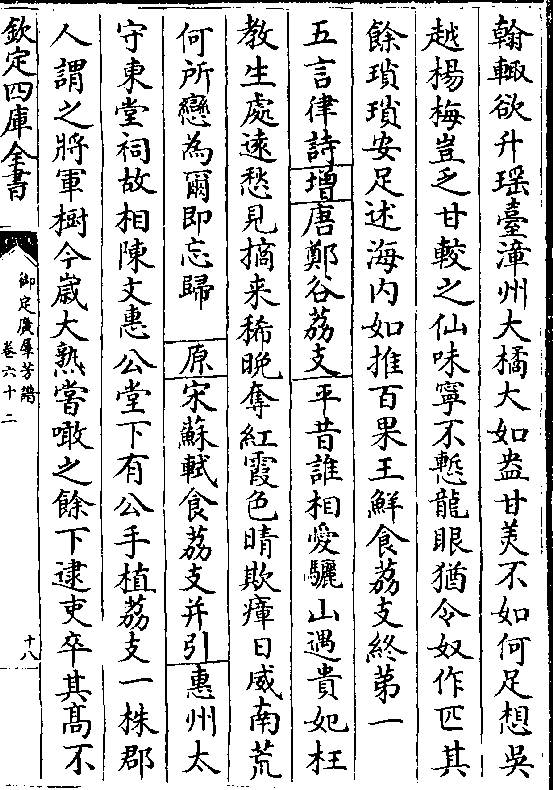 翰輙欲升瑶臺漳州大橘大如盎甘美不如何足想吳
越楊梅豈乏甘較之仙味寧不慙龍眼猶令奴作匹其
餘瑣瑣安足述海内如推百果王鮮食荔支終第一
五言律詩增唐鄭谷荔支平昔誰相愛驪山遇貴妃枉
教生處遠愁見摘来稀晩奪紅霞色晴欺瘴日威南荒
何所戀為爾即忘歸 原宋蘇軾食荔支并引惠州太
守東堂祠故相陳文惠公堂下有公手植荔支一株郡
人謂之將軍樹今歲大熟嘗啖之餘下逮吏卒其髙不
欽定四庫全書
御定廣羣芳譜
卷六十二
十八